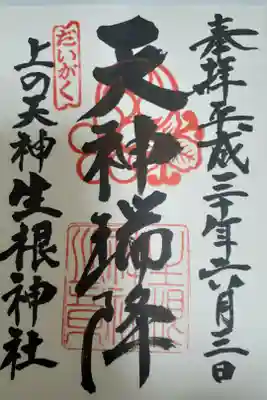 奉拝平成三十年六月三日
天神瑞降
だいがく
上の天神生根神社